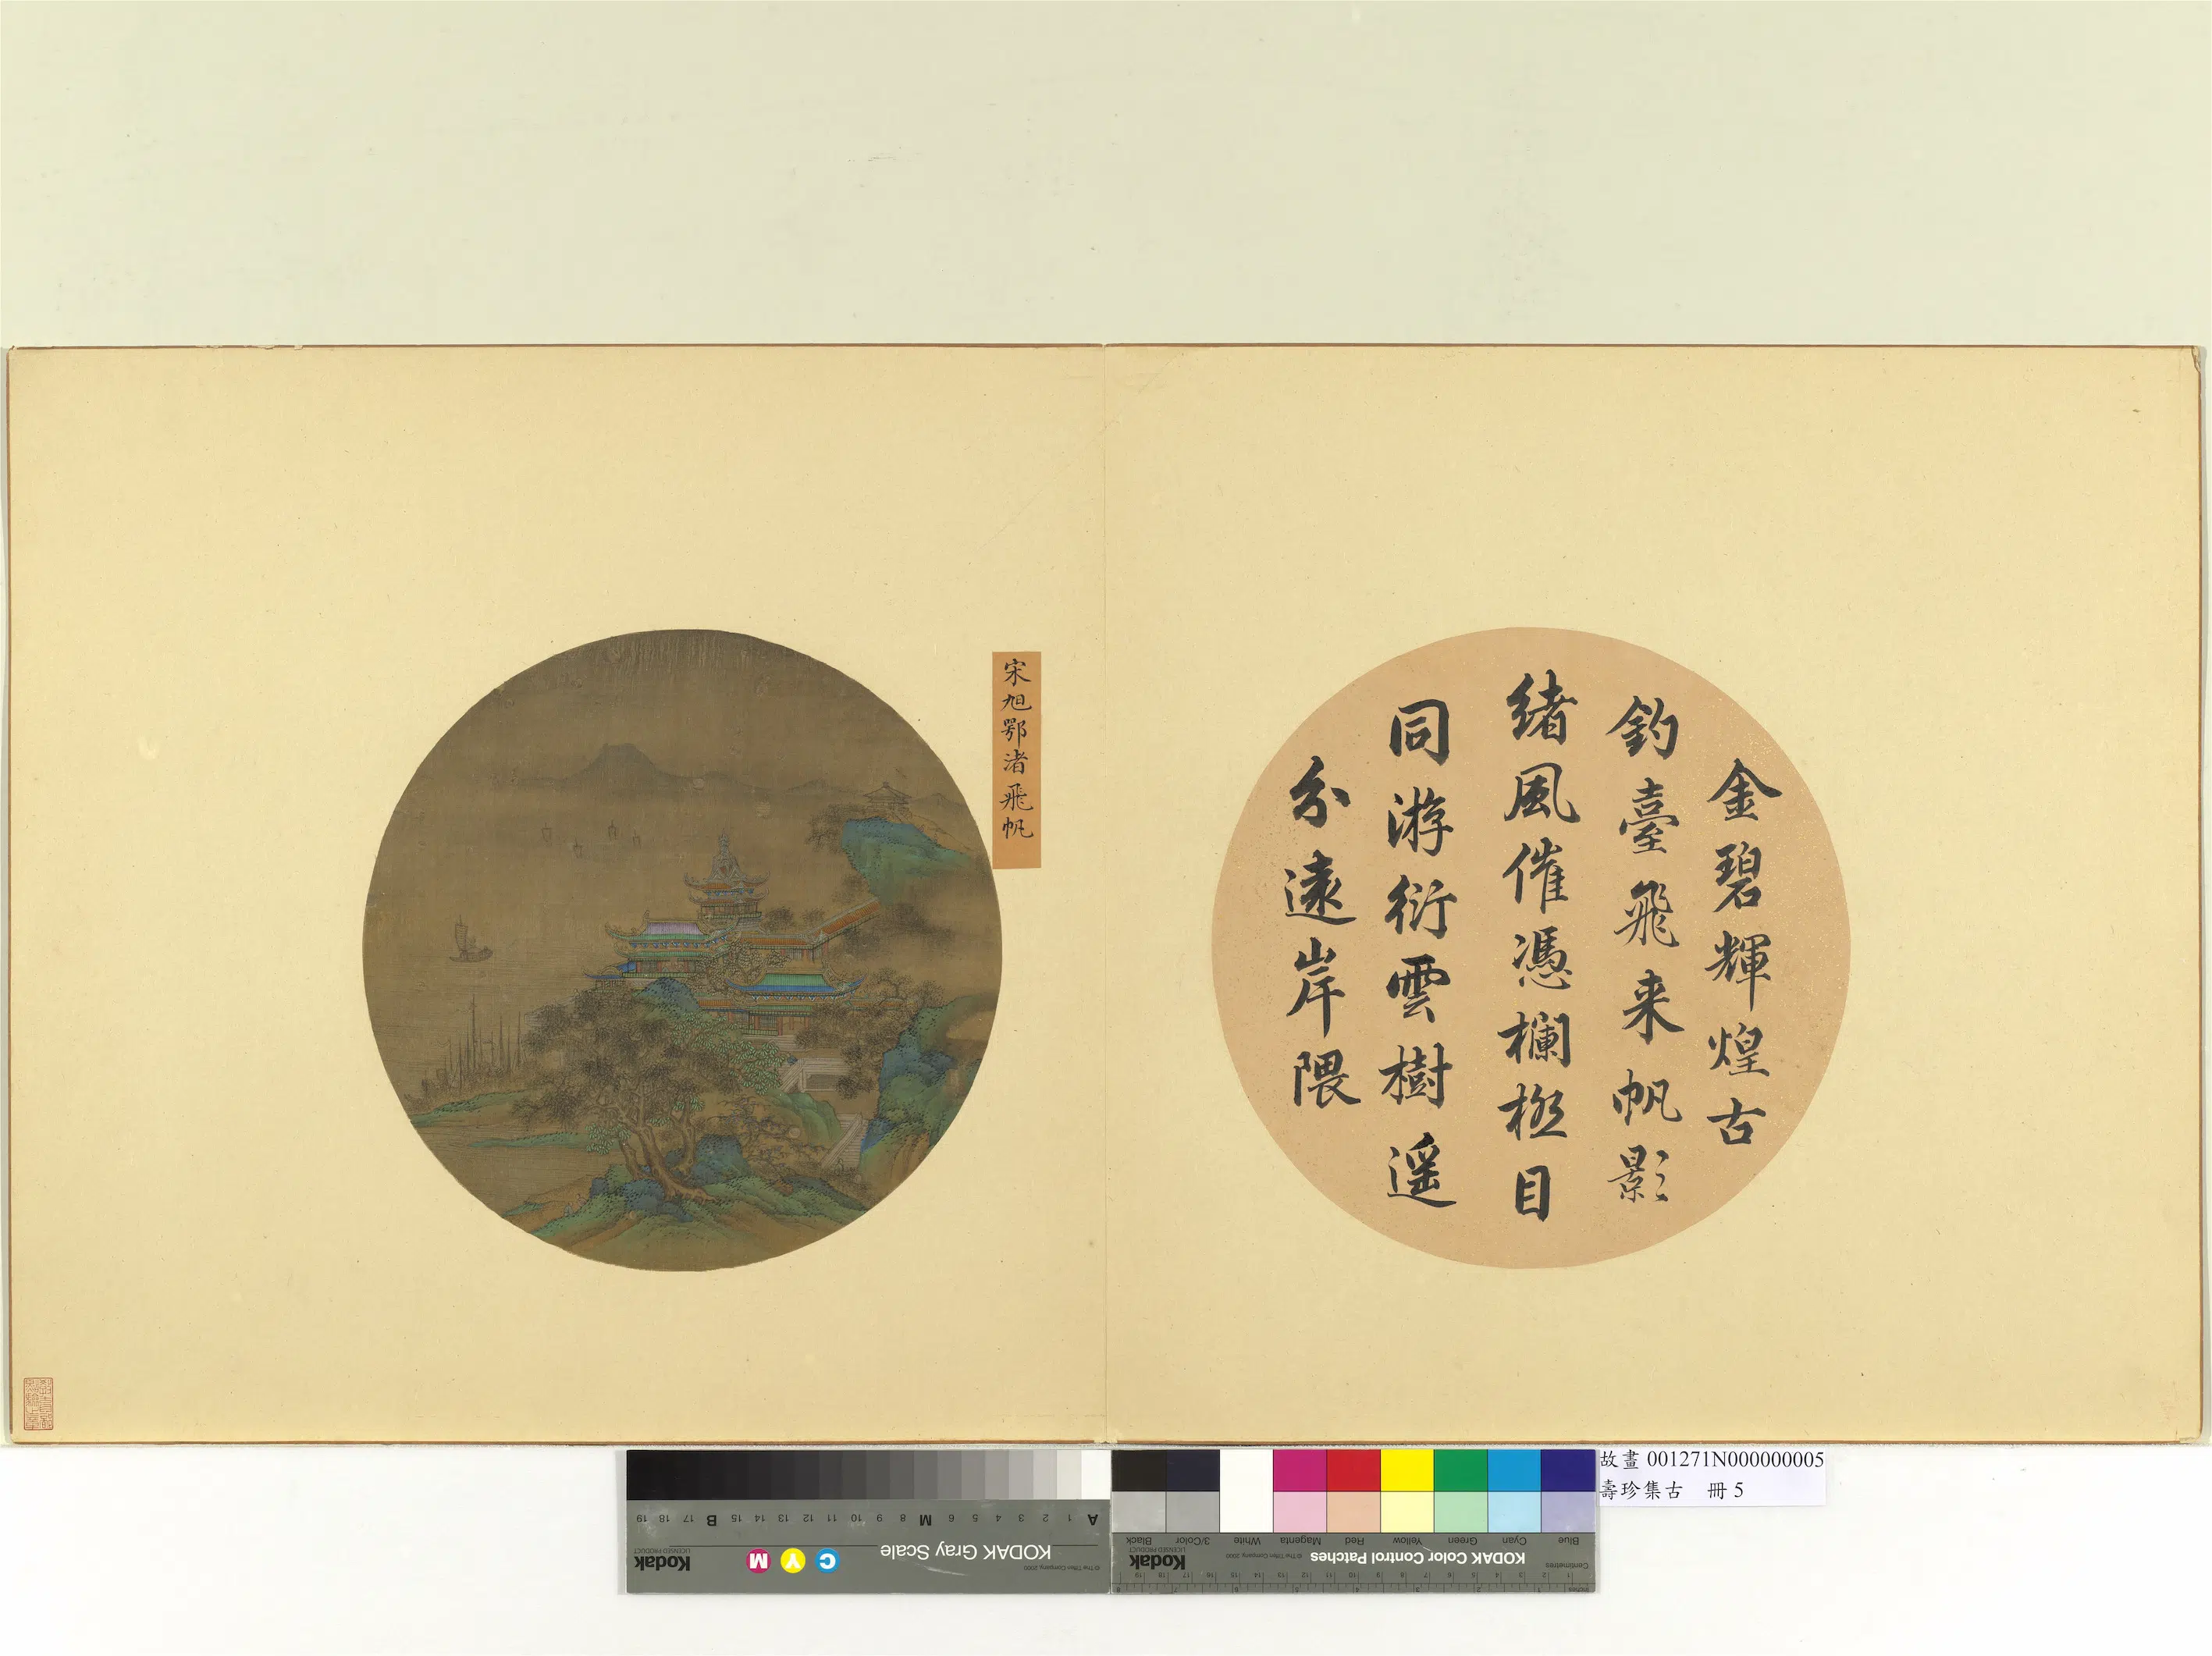 金碧輝煌古
釣臺飛来帆影
緒風催憑欄極目
同游衍雲樹遥
分遠岸隈
宋旭鄂渚飛帆
故畫 001271N000000005
壽珍集古 冊 5
KODAK Gray Scale
Kodak
LICENSED PRODUCT
© The Tiffen Company, 2000
C Y M
A 1 2 3 4 5 6 M 8 9 10 11 12 13 14 15 B 17 18 19
KODAK Color Control Patches
Kodak
LICENSED PRODUCT
© The Tiffen Company, 2000
Blue Cyan Green Yellow Red Magenta White 3/Color Black
Centimetres
Inches